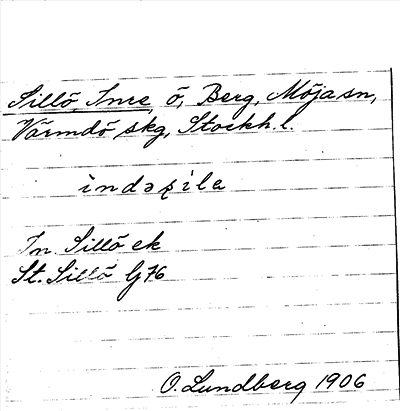 Sillö, Inre, ö, Berg, Möja sn,
Värmdö skg, Stockh. l.
In. Sillö ek
St. Sillö G76
O. Lundberg 1906